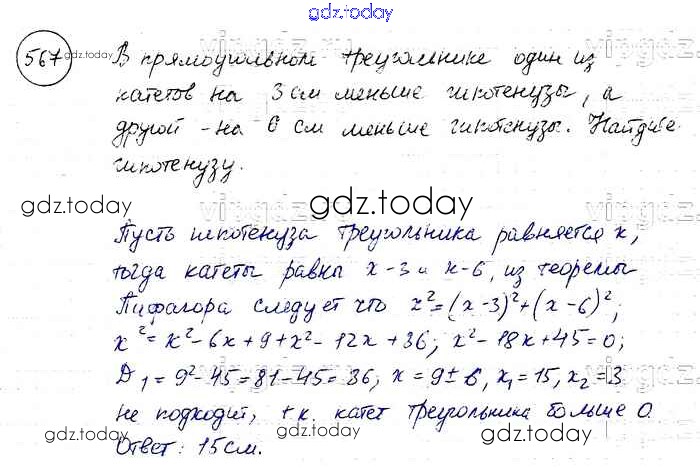 gdz.today
567 В прямоугольном треугольнике один из
катетов на 3 см меньше гипотенузы, а
другой - на 6 см меньше гипотенузы. Найдите
гипотенузу.
gdz.today
gdz.today
gdz.today
Пусть гипотенуза треугольника равняется x,
тогда катеты равны x-3 и x-6, из теоремы
Пифагора следует что x²=(x-3)²+(x-6)²;
x²=x²-6x+9+x²-12x+36; x²-18x+45=0;
Д₁=9²-45=81-45=36; x=9±6, x₁=15, x₂=3
не подходит, т.к. катет треугольника больше 0.
gdz.today
gdz.today
gdz.today
Ответ: 15см.